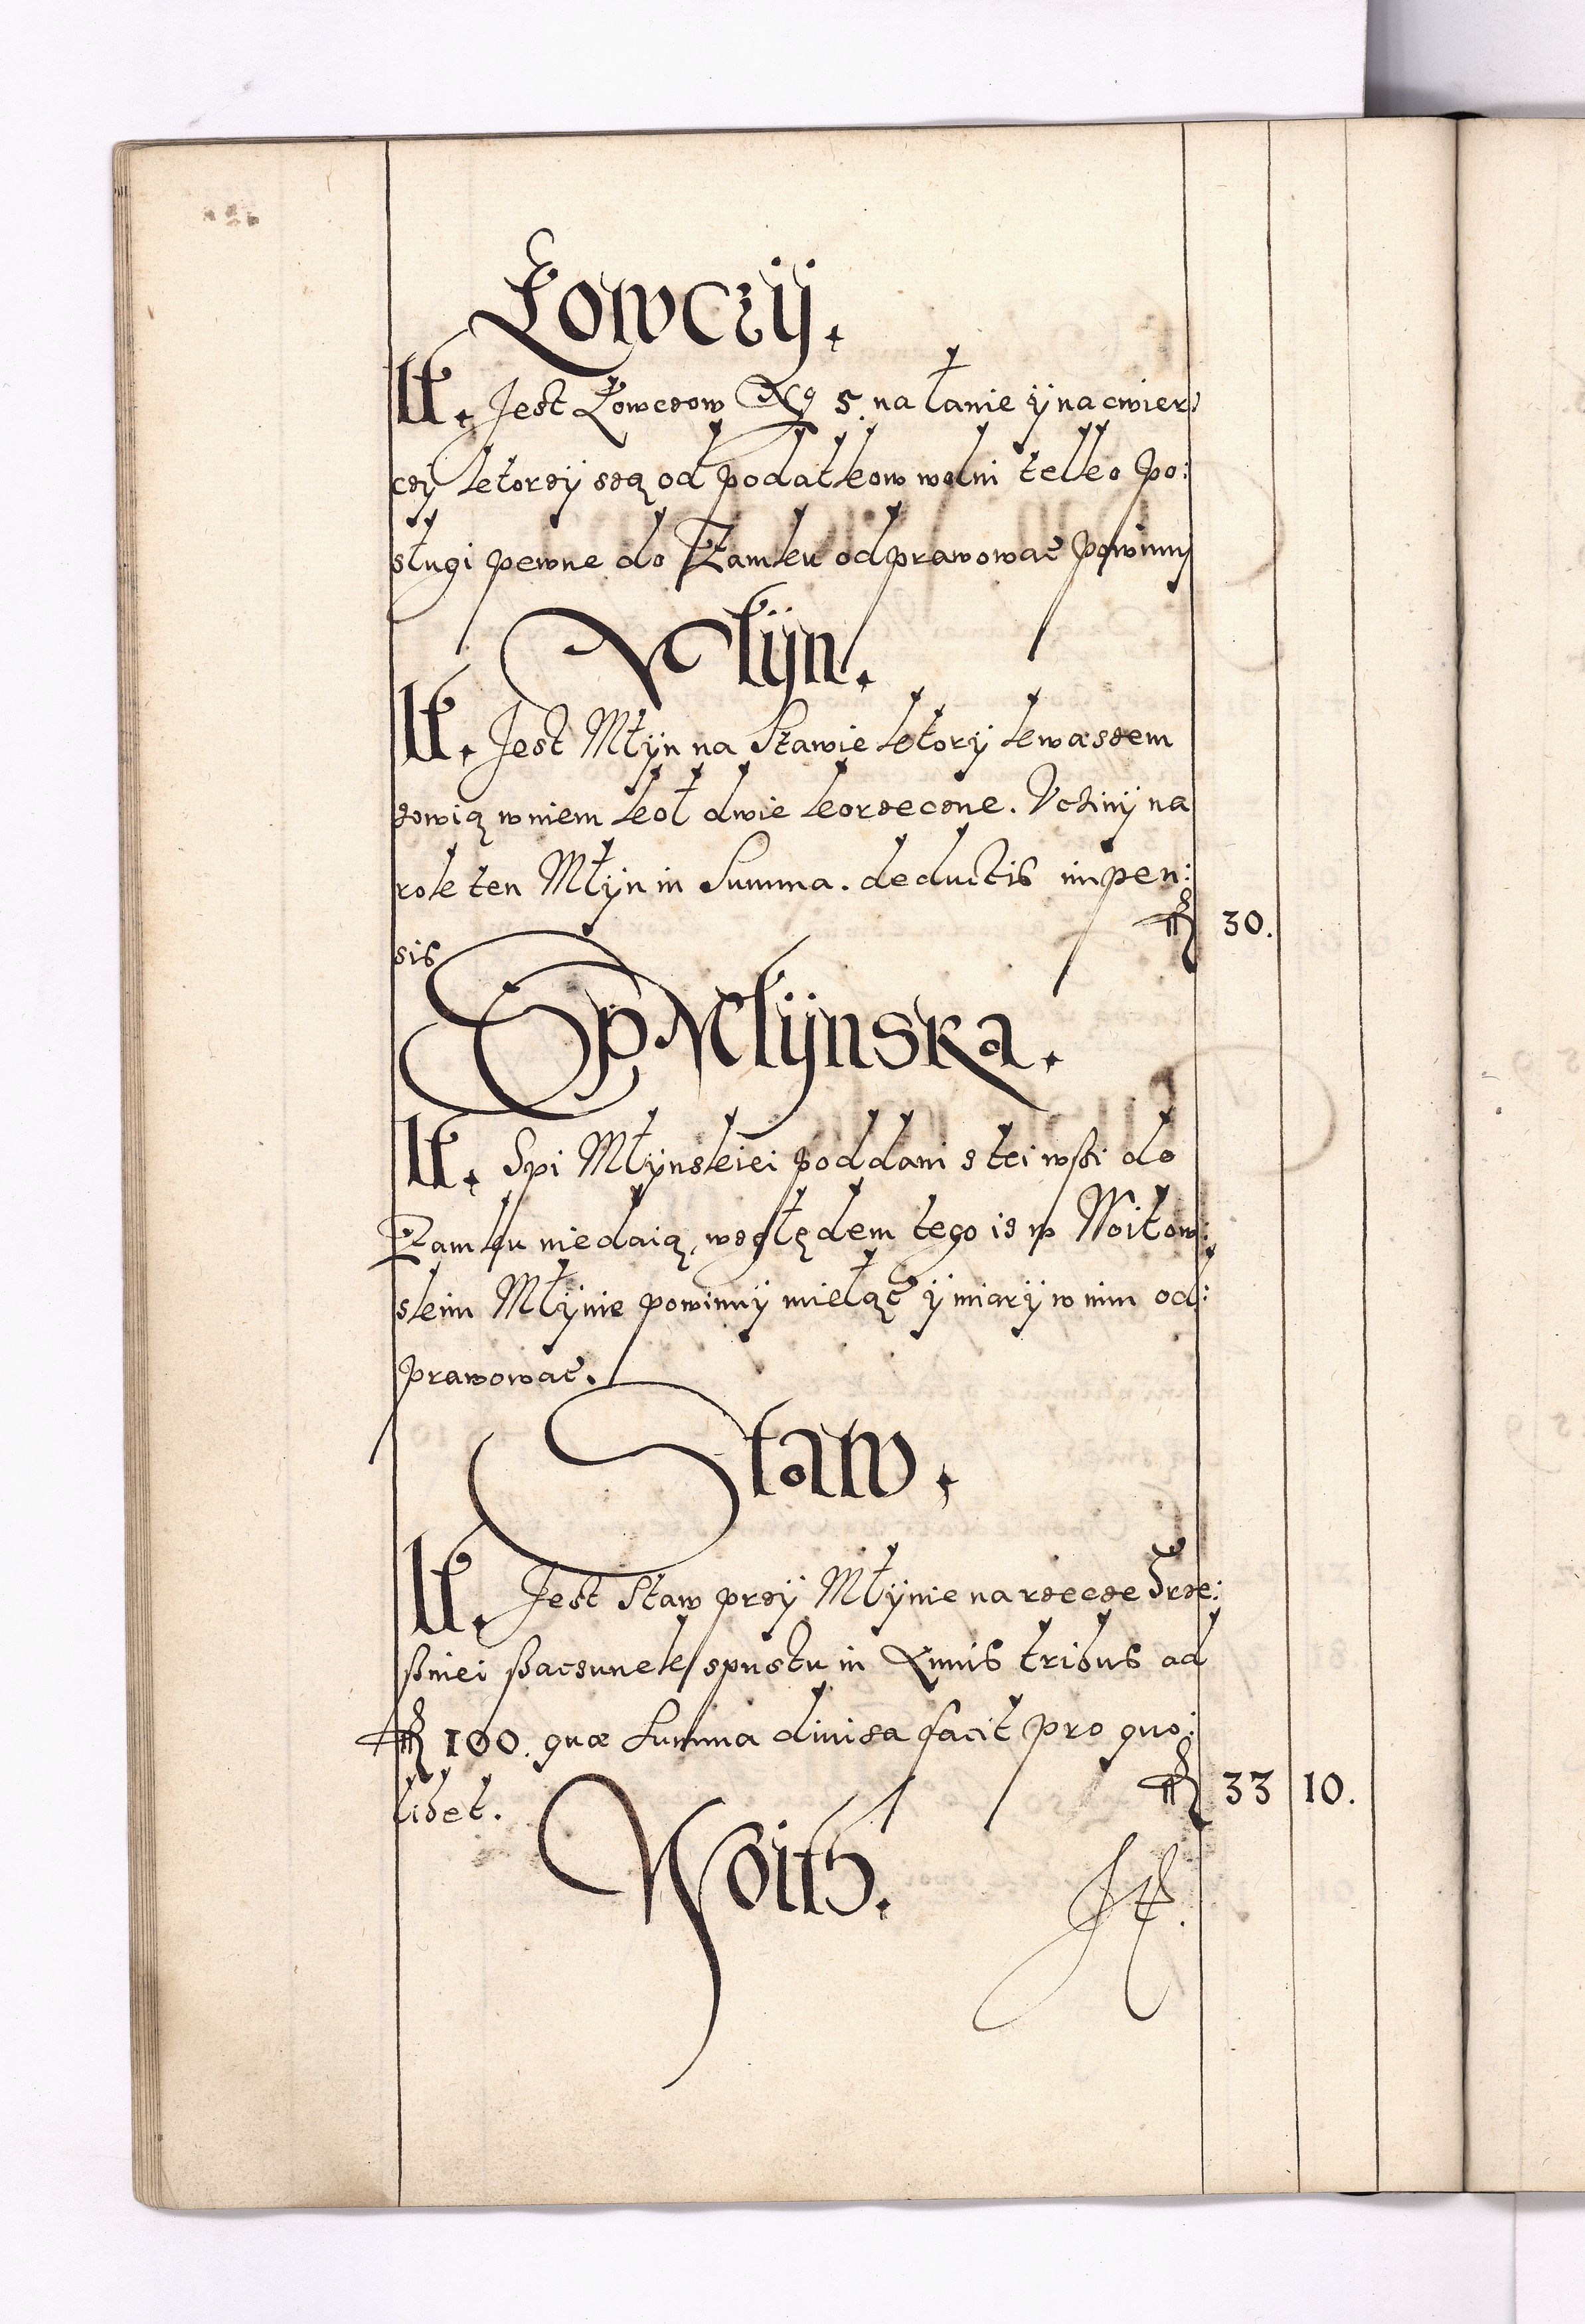 Łowczÿ.
It. Jest Łowczow No 5. na łanie ÿ na cwier:
czÿ ktorzÿ szą od podatkow wolni telko po:
sługi pewne do Zamku odprawowac powinny
Młÿn.
It. Jest Młÿn na Stawie ktorÿ kwaszem
zowią w niem koł dwie korzeczne. Vczinÿ na
rok ten Młÿn in Summa. deductis impen:
sis fl 30.
Sp Młÿnska.
It. Spi Młÿnskiei poddani s tei wsżi do
Zamku niedaią, względem tego is w Woitow:
skim Młÿnie powinnÿ mieląc ÿ miarÿ w nim od:
prawowac.
Staw.
It. Jest Staw przÿ Młÿnie na rzecze Trze:
ßniei ßaczunek spustu in Annis tribus ad
fl 100. quæ Summa diuisa facit pro quo:
libet. fl 33 10.
Woitß.